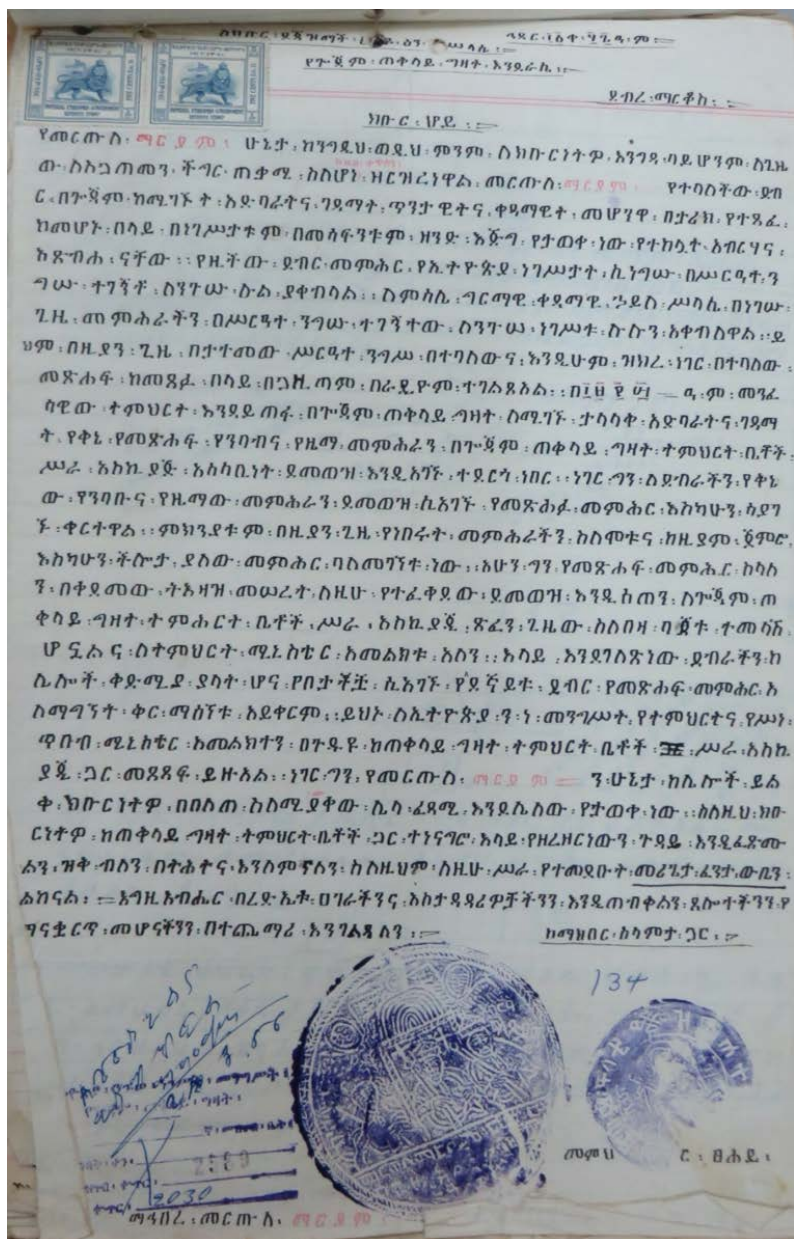 ለክቡር፡ደጃዝማች፡
የጐጃም፡ጠቅላይ፡ግዛት፡እንደራሴ፡፡
ደብረ፡ማርቆስ፡፡
ክቡር፡ሆይ፡፡
የመርጡለ፡ማርያም፡ሁኔታ፡ከንግዲህ፡ወዲህ፡ምንም፡ለክቡርነትዎ፡እንግዳ፡ባይሆንም፡ለጊዜ
ው፡ስለአጋጠመን፡ችግር፡ጠቃሚ፡ስለሆነ፡ዘርዝረነዋል፡መርጡለ፡ማርያም፡የተባለችው፡ደብ
ር፡በጐጃም፡ከሚገኙት፡አድባራትና፡ገዳማት፡ጥንታዊትና፡ቀዳማዊት፡መሆንዋ፡በታሪክ፡የተጻፈ፡
ከመሆኑ፡በላይ፡በነገሥታቱም፡በመሳፍንቱም፡ዘንድ፡እጅግ፡የታወቀ፡ነው፡የተከሏት፡አብርሃና፡
አጽብሐ፡ናቸው፡፡የዚችው፡ደብር፡መምህር፡የኢትዮጵያ፡ነገሥታት፡ሲነግሡ፡በሥርዓተ፡ን
ግሡ፡ተገኝቶ፡ስንዑሡ፡ሎል፡ያቀብላል፡፡ግርማዊ፡ቀዳማዊ፡ኃይለ፡ሥላሴ፡በነገሡ፡
ጊዜ፡መምህራችን፡በሥርዓተ፡ንግሡ፡ተገኝተው፡ነገሥቱ፡አቀብለዋል፡፡ይ
ህም፡በዚያን፡ጊዜ፡በታተመው፡ሥርዓተ፡ንግሥ፡በተባለውና፡እንዲሁም፡ዝክረ፡ነገር፡በተባለው፡
መጽሐፍ፡ከመጻፉ፡በላይ፡በጋዜጣም፡በራዲዮም፡ተገልጾአል፡፡ዓ፡ም፡መንፈ
ሳዊው፡ትምህርት፡እንዳይጠፋ፡በጐጃም፡ጠቅላይ፡ግዛት፡ለሚገኙ፡ታላላቅ፡አድባራትና፡ገዳማ
ት፡የቅኔ፡የመጽሐፍ፡የንባብና፡የዜማ፡መምህራን፡በጐጃም፡ጠቅላይ፡ግዛት፡ትምህርት፡ቤቶች፡
ሥራ፡አስኪያጅ፡አሳሳቢነት፡ደመወዝ፡እንዲአገኙ፡ተደርጎ፡ነበር፡፡ነገር፡ግን፡ለደብራችን፡የቅኔ
ው፡የንባቡና፡የዜማው፡መምህራን፡ደመወዝ፡ሲአገኙ፡የመጽሐፉ፡መምህር፡እስካሁን፡ሳያገ
ኙ፡ቀርተዋል፡፡ምክንያቱም፡በዚያን፡ጊዜ፡የነበሩት፡መምህራችን፡ስለሞቱና፡ከዚያም፡ጀምሮ፡
እስካሁን፡ችሎታ፡ያለው፡መምህር፡ባለመገኘቱ፡ነው፡፡አሁን፡ግን፡የመጽሐፍ፡መምህር፡ስላለ
ን፡በቀደመው፡ትእዛዝ፡መሠረት፡ለዚሁ፡የተፈቀደው፡ደመወዝ፡እንዲሰጠን፡ለጐጃም፡ጠ
ቅላይ፡ግዛት፡ትምህርት፡ቤቶች፡ሥራ፡አስኪያጂ፡ጽፈን፡ጊዜው፡ስለበዛ፡ባጀቱ፡ተመላሽ፡
ሆኗልና፡ለትምህርት፡ሚኒስቴር፡አመልክቱ፡አለን፡፡እላይ፡እንደገለጽነው፡ደብራችን፡ከ
ሌሎች፡ቀድሚያ፡ያላት፡ሆና፡የበታቾቿ፡ሲአገኙ፡የደኛይቱ፡ደብር፡የመጽሐፍ፡መምህር፡አ
ለማግኘት፡ቅር፡ማሰኘቱ፡አይቀርም፡፡ይህኑ፡ለኢትዮጵያ፡ን፡ነ፡መንግሥት፡የትምህርትና፡የሥነ፡
ጥበብ፡ሚኒስቴር፡አመልክተን፡በጉዳዩ፡ከጠቅላይ፡ግዛት፡ትምህርት፡ቤቶች፡ሥራ፡አስኪ
ያጂ፡ጋር፡መጻጻፍ፡ይዙአል፡፡ነገር፡ግን፡የመርጡለ፡ማርያም፡ን፡ሁኔታ፡ከሌሎች፡ይል
ቅ፡ክቡርነትዎ፡በበለጠ፡ስለሚያቀው፡ሌላ፡ፈጻሚ፡እንደሌለው፡የታወቀ፡ነው፡፡ስለዚህ፡ክቡ
ርነትዎ፡ከጠቅላይ፡ግዛት፡ትምህርት፡ቤቶች፡ጋር፡ተነጋግሮ፡እላይ፡የዘረዘርነውን፡ጉዳይ፡እንዲፈጽሙ
ልን፡ዝቅ፡ብለን፡በትሕትና፡እንለምናለን፡ስለዚህም፡ለዚሁ፡ሥራ፡የተመደቡት፡መሪጌታ፡ፈንታ፡ውቤን፡
ልከናል፡፡እግዚአብሔር፡በረድኤቱ፡ሀገራችንና፡አስታዳዳሪዎቻችንን፡እንዲጠብቅልን፡ጸሎተኞችን፡የ
ማናቋርጥ፡መሆናችንን፡በተጨማሪ፡እንገልጻለን፡፡
ከማክበር፡ሰላምታ፡ጋር፡፡
134
2030
መምህር፡ፀሐይ፡
ማኅበረ፡መርጡለ፡ማርያም፡